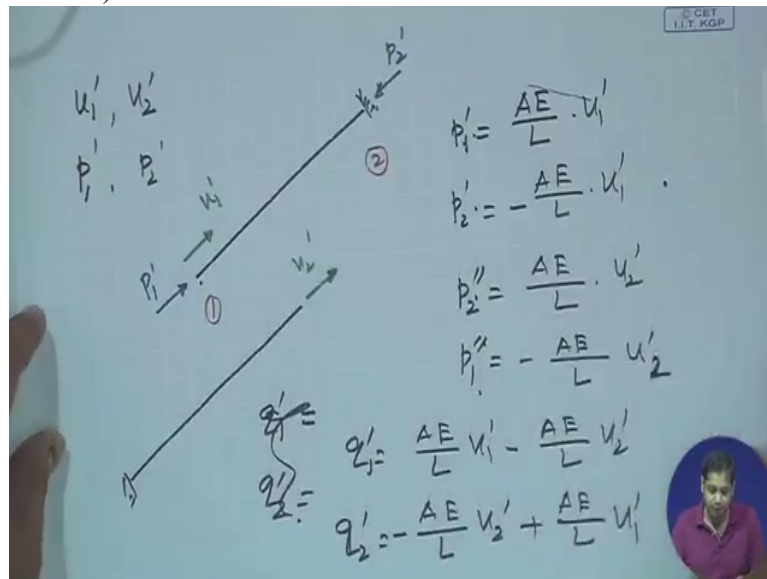 © CET
I.I.T. KGP
u₁', u₂'
p₁', p₂'
p₂'
②
u₁'
p₁'
①
u₂'
p₁' = AE/L · u₁'
p₂' = - AE/L · u₁'
p₂'' = AE/L · u₂'
p₁'' = - AE/L u₂'
q₁' =
q₂' =
q₁' = AE/L u₁' - AE/L u₂'
q₂' = - AE/L u₂' + AE/L u₁'